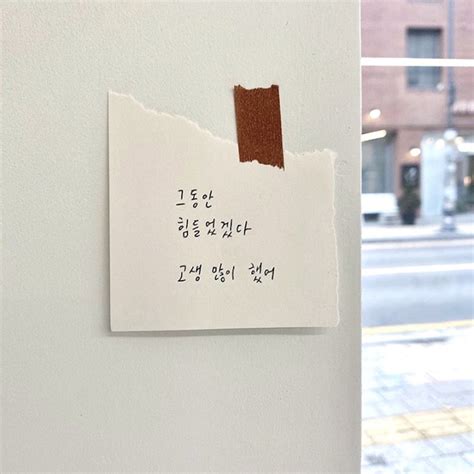 그동안
힘들었겠다
고생 많이 했어